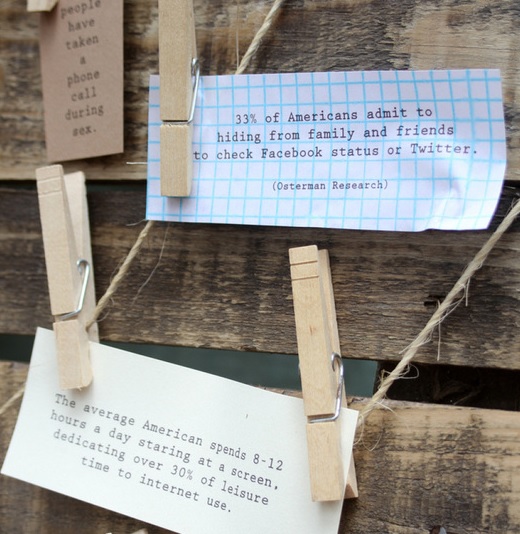 people
have
taken
a
phone
call
during
sex.
33% of Americans admit to
hiding from family and friends
to check Facebook status or Twitter.
(Osterman Research)
The average American spends 8-12
hours a day staring at a screen,
dedicating over 30% of leisure
time to internet use.